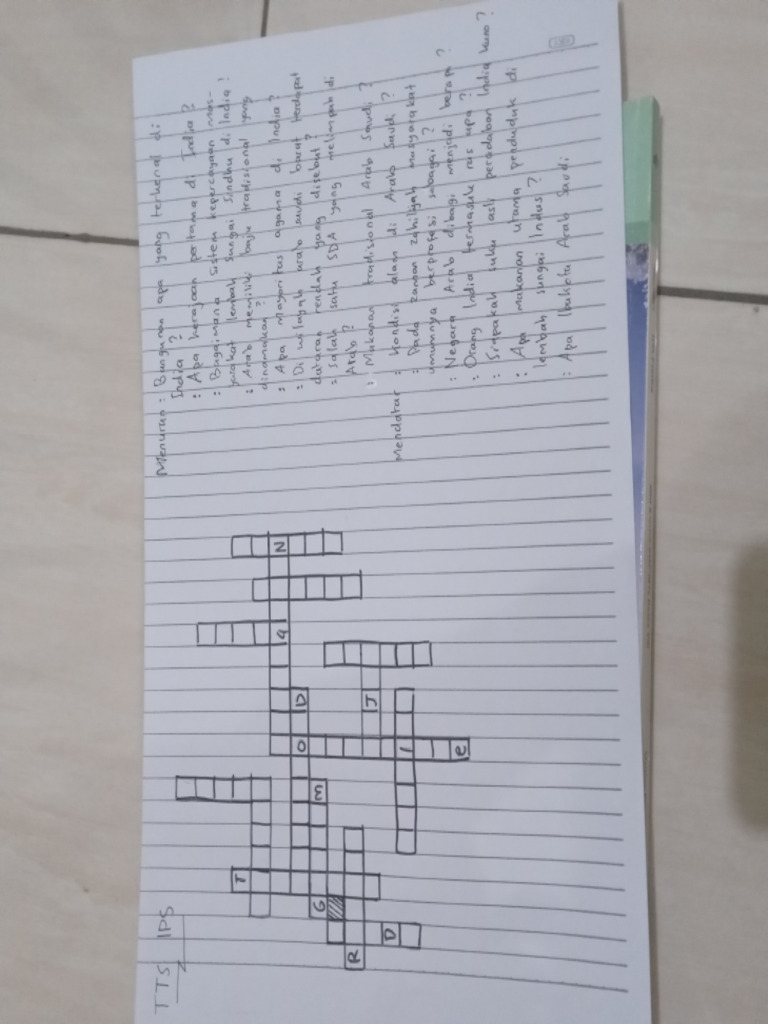 TTS IPS
T
G
M
R
D
O
D
I
e
J
9
N
Menurun : Bangunan apa yang terkenal di
India ?
: Apa kerajaan pertama di India ?
: Bagaimana sistem kepercayaan mas-
yarakat lembah sungai Sindhu di India ?
: Arab memiliki baju tradisional yang
dinamakan ?
: Apa mayoritas agama di India ?
: Di wilayah arab saudi barat terdapat
dataran rendah yang disebut ?
: Salah satu SDA yang melimpah di
Arab ?
: Makanan tradisional Arab Saudi ?
Mendatar : Kondisi alam di Arab Saudi ?
: Pada zaman zahiliyah masyarakat
umumnya berprofesi sebagai ?
: Negara Arab dibagi menjadi berapa ?
: Orang India termasuk ras apa ?
: Siapakah suku asli peradaban India kuno ?
: Apa makanan utama penduduk di
lembah sungai Indus ?
: Apa Ibukota Arab Saudi